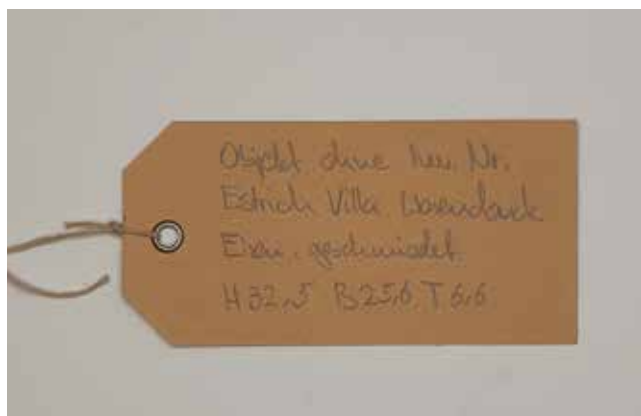 Objekt ohne Inv. Nr.
Estrich Villa Wesendonck
Eisen, geschmiedet.
H 32,5 B 25,6 T 6,6